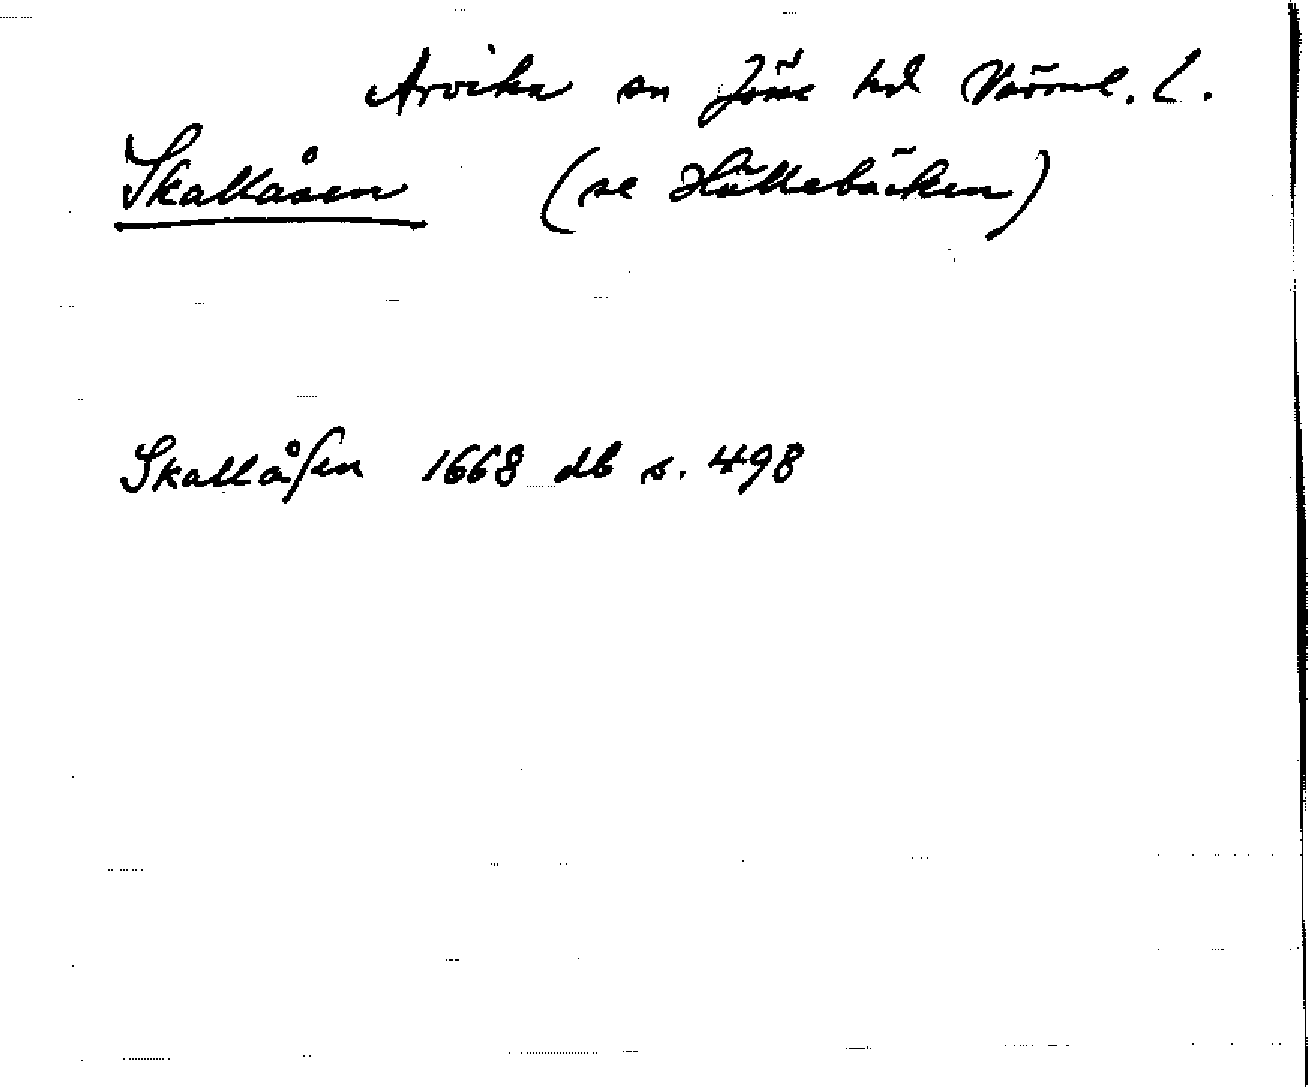 Arvika sn Jösse hd Värml. l.
Skallåsen (se Hältebäcken)
Skallåsen 1668 db s. 498